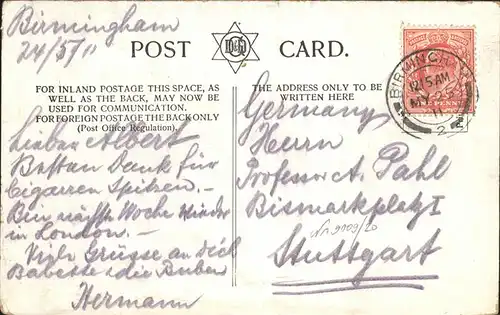 Birmingham
24/5/11
POST CARD.
FOR INLAND POSTAGE THIS SPACE, AS
WELL AS THE BACK, MAY NOW BE
USED FOR COMMUNICATION.
FOR FOREIGN POSTAGE THE BACK ONLY
(Post Office Regulation).
THE ADDRESS ONLY TO BE
WRITTEN HERE
Lieber Albert
Besten Dank für
Cigarren Spitzen. -
Bin nächste Woche wieder
in London. -
Viele Grüsse an dich
Babette & die Buben
Hermann
Germany
Herrn
Professor A. Pahl
Bismarkplatz I
Stuttgart
BIRMINGHAM
12 15 AM
MY 25
11
ONE PENNY